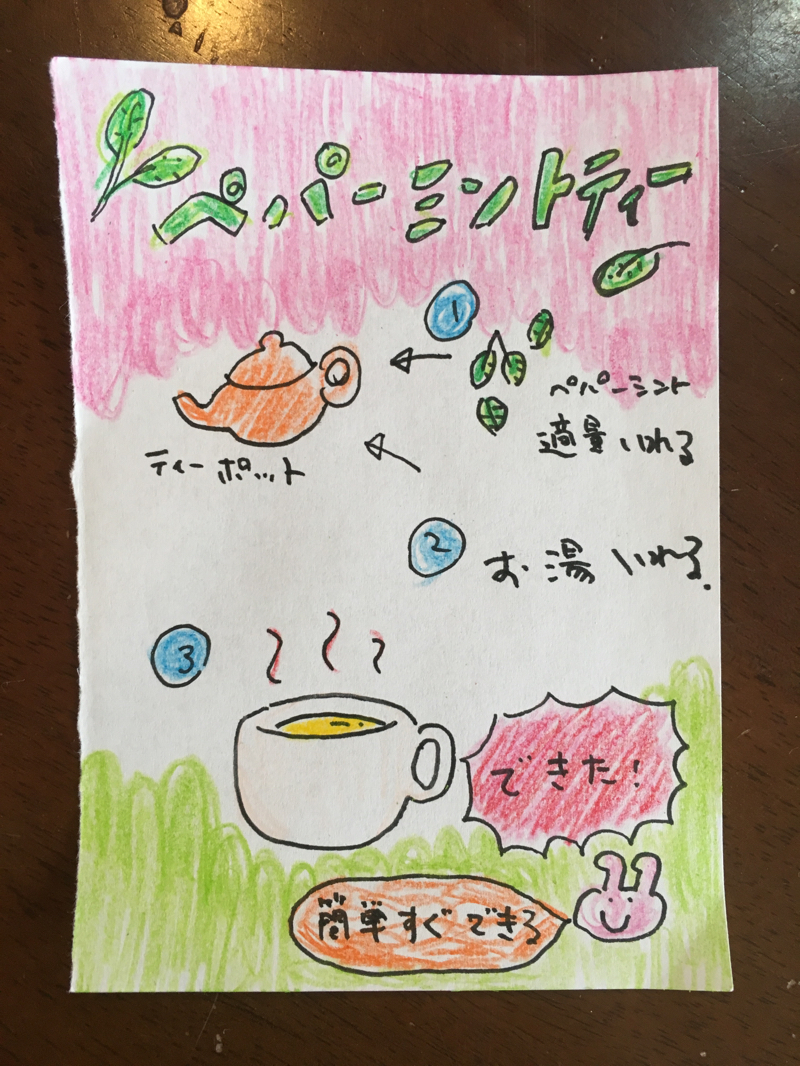 ペパーミントティー
1
ペパーミント
適量いれる
ティーポット
2
お湯いれる.
3
できた!
簡単すぐできる